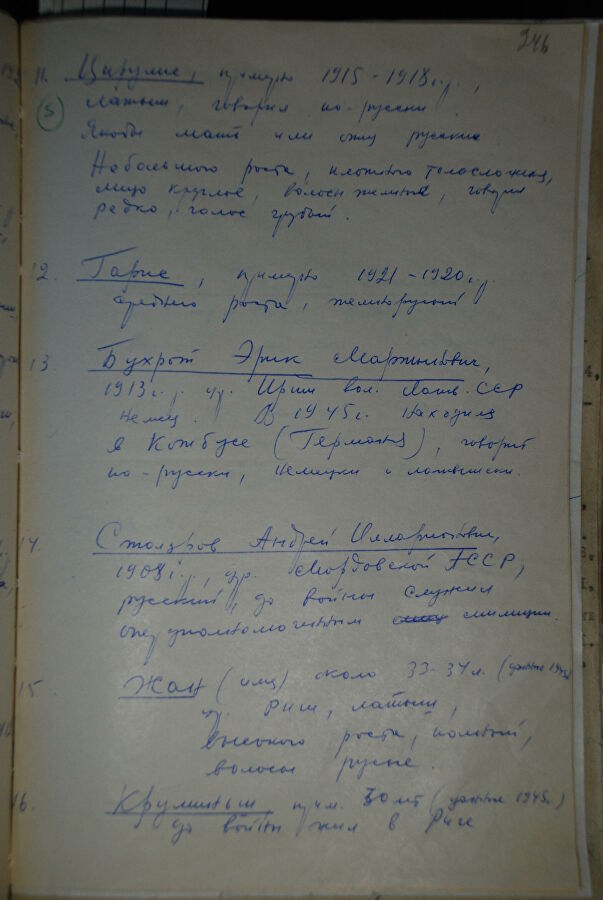 246
11. Цирулис, примерно 1915-1918 г.р.,
5 латыш, говорил по-русски.
Якобы мать или отец русские
Небольшого роста, плотного телосложения,
лицо круглое, волосы темные, говорит
редко, голос грубый.
12. Гарис, примерно 1921-1920 г.р.
среднего роста, темнорусый
13 Бухрот Эрик Мартынович,
1913 г.р. ур. вол. Латв. ССР
немец. В 1945 г. находился
в Котбусе (Германия), говорит
по-русски, немецки и латышски.
14. Столяров Андрей Илларионович,
1908 г.р., ур. Мордовской АССР,
русский, до войны служил
оперуполномоченным милиции.
15 Жан (имя) около 33-34 л. (данные 1945г)
ур. Риги, латыш,
высокого роста, полный,
волосы русые.
16. Круминьш прим. 30 лет (данные 1945г.)
до войны жил в Риге